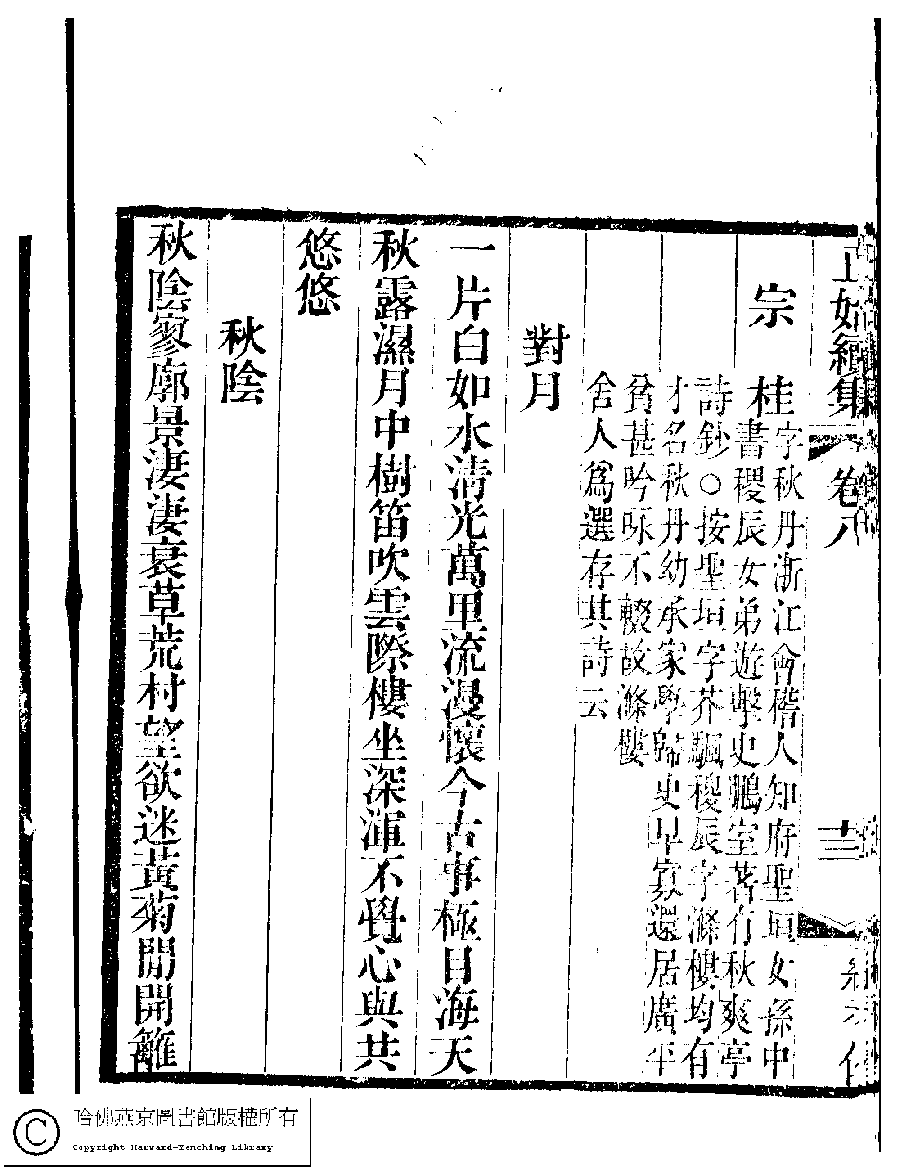 正始續集　卷八　十三
宗　桂　字秋丹浙江會稽人知府聖垣女孫中
書稷辰女弟遊擊史鵬室著有秋爽亭
詩鈔○按聖垣字芥颿稷辰字滌樓均有
才名秋丹幼承家學歸史早寡還居廣平
貧甚吟咏不輟故滌樓
舍人爲選存其詩云
對月
一片白如水清光萬里流漫懷今古事極目海天
秋露濕月中樹笛吹雲際樓坐深渾不覺心與共
悠悠
秋陰
秋陰寥廓景淒淒衰草荒村望欲迷黃菊閒開籬
哈佛燕京圖書館版權所有
Copyright Harvard-Yenching Library